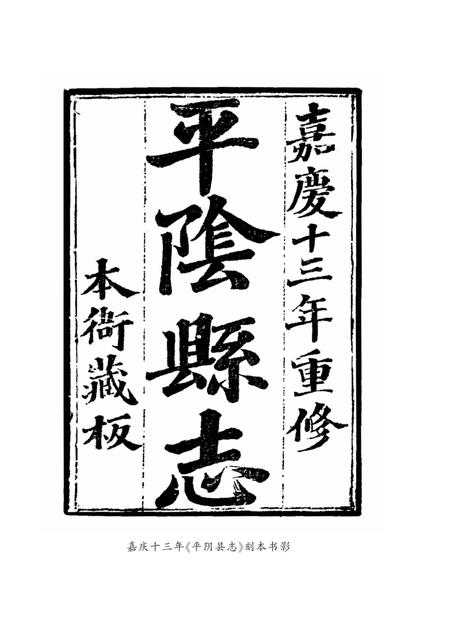 嘉慶十三年重修
平隂縣志
本衙藏板
嘉庆十三年《平阴县志》刻本书影